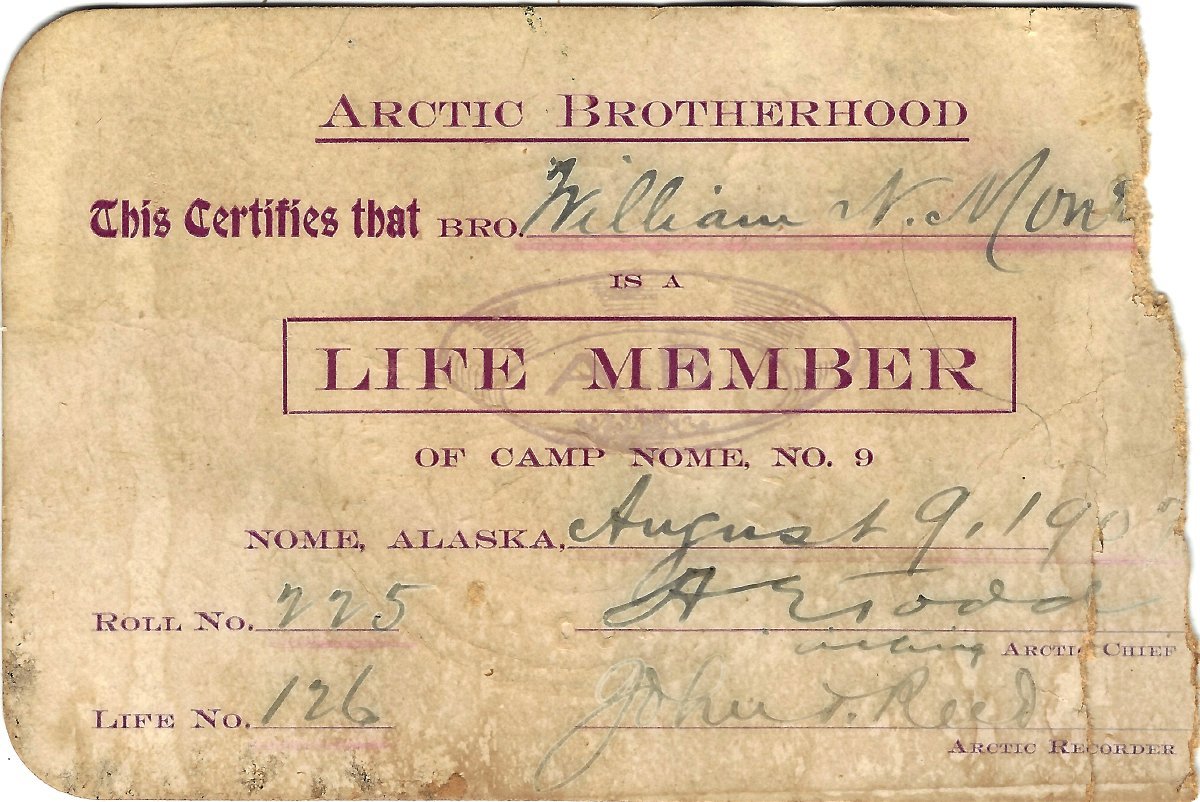 ARCTIC BROTHERHOOD
This Certifies that BRO. William N. Mon
IS A
LIFE MEMBER
OF CAMP NOME, NO. 9
NOME, ALASKA, August 9, 190
ROLL NO. 225 A E Todd
Acting ARCTIC CHIEF
LIFE NO. 126 John T. Reed
ARCTIC RECORDER